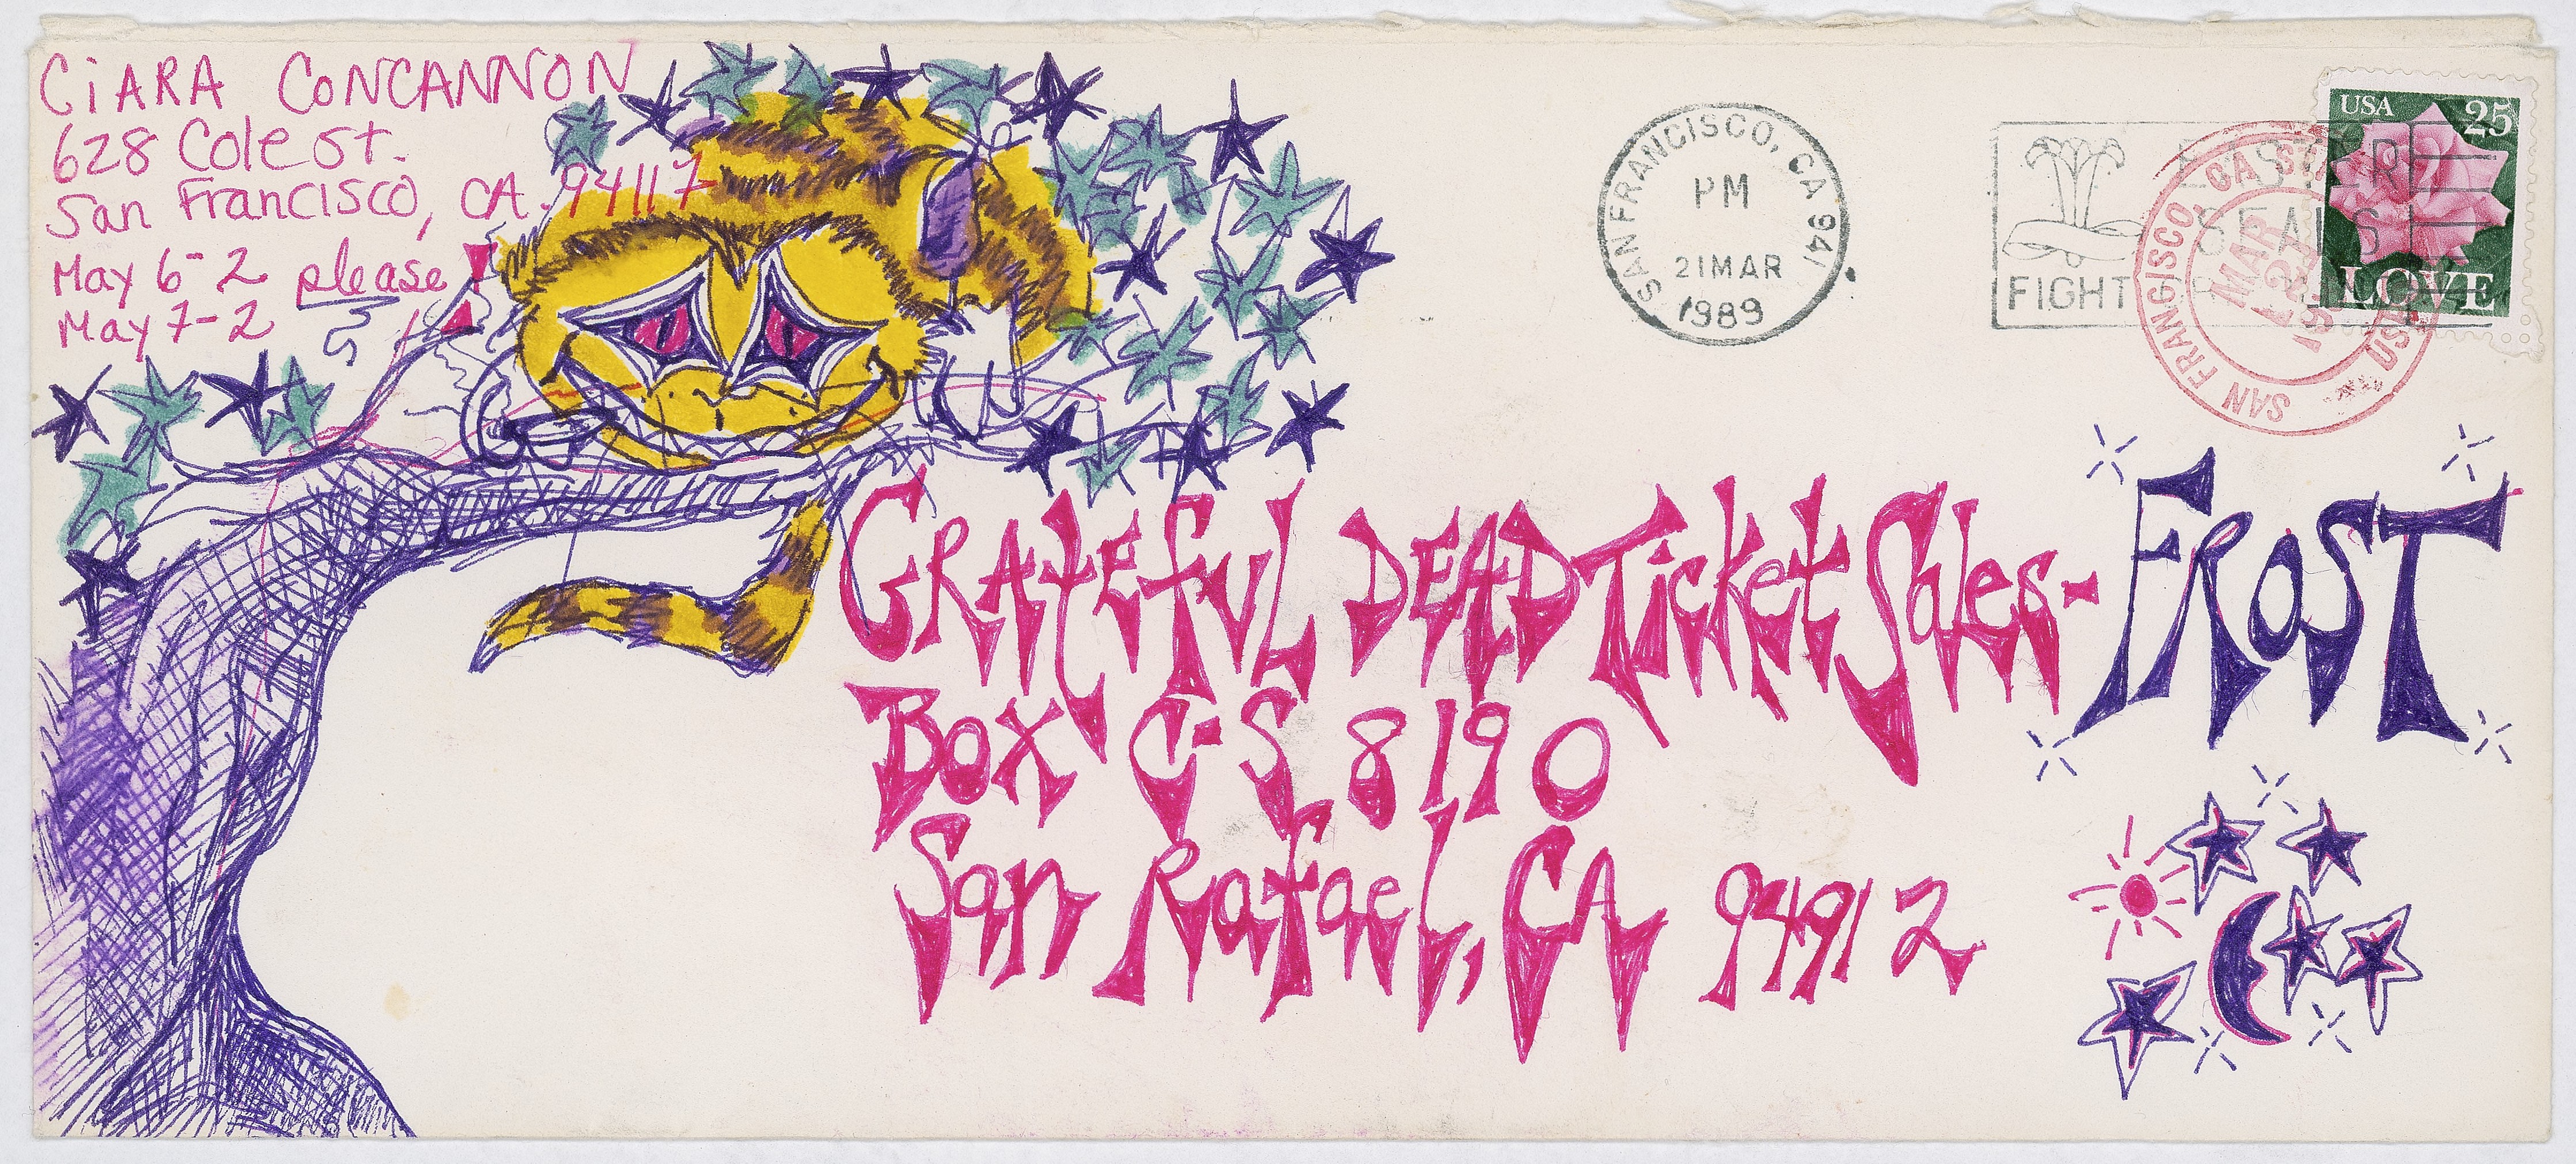 CiARA CONCANNON
628 Cole st.
San Francisco, CA. 94117
May 6-2 please!
May 7-2
SAN FRANCISCO, CA 941
PM
21 MAR
1989
EASTER
SEALS
FIGHT
SAN FRANCISCO, CA
MAR
USPS
USA 25
LOVE
GRAteful DEAD Ticket Sales- FROST
Box C-S 8190
San Rafael, CA 94912